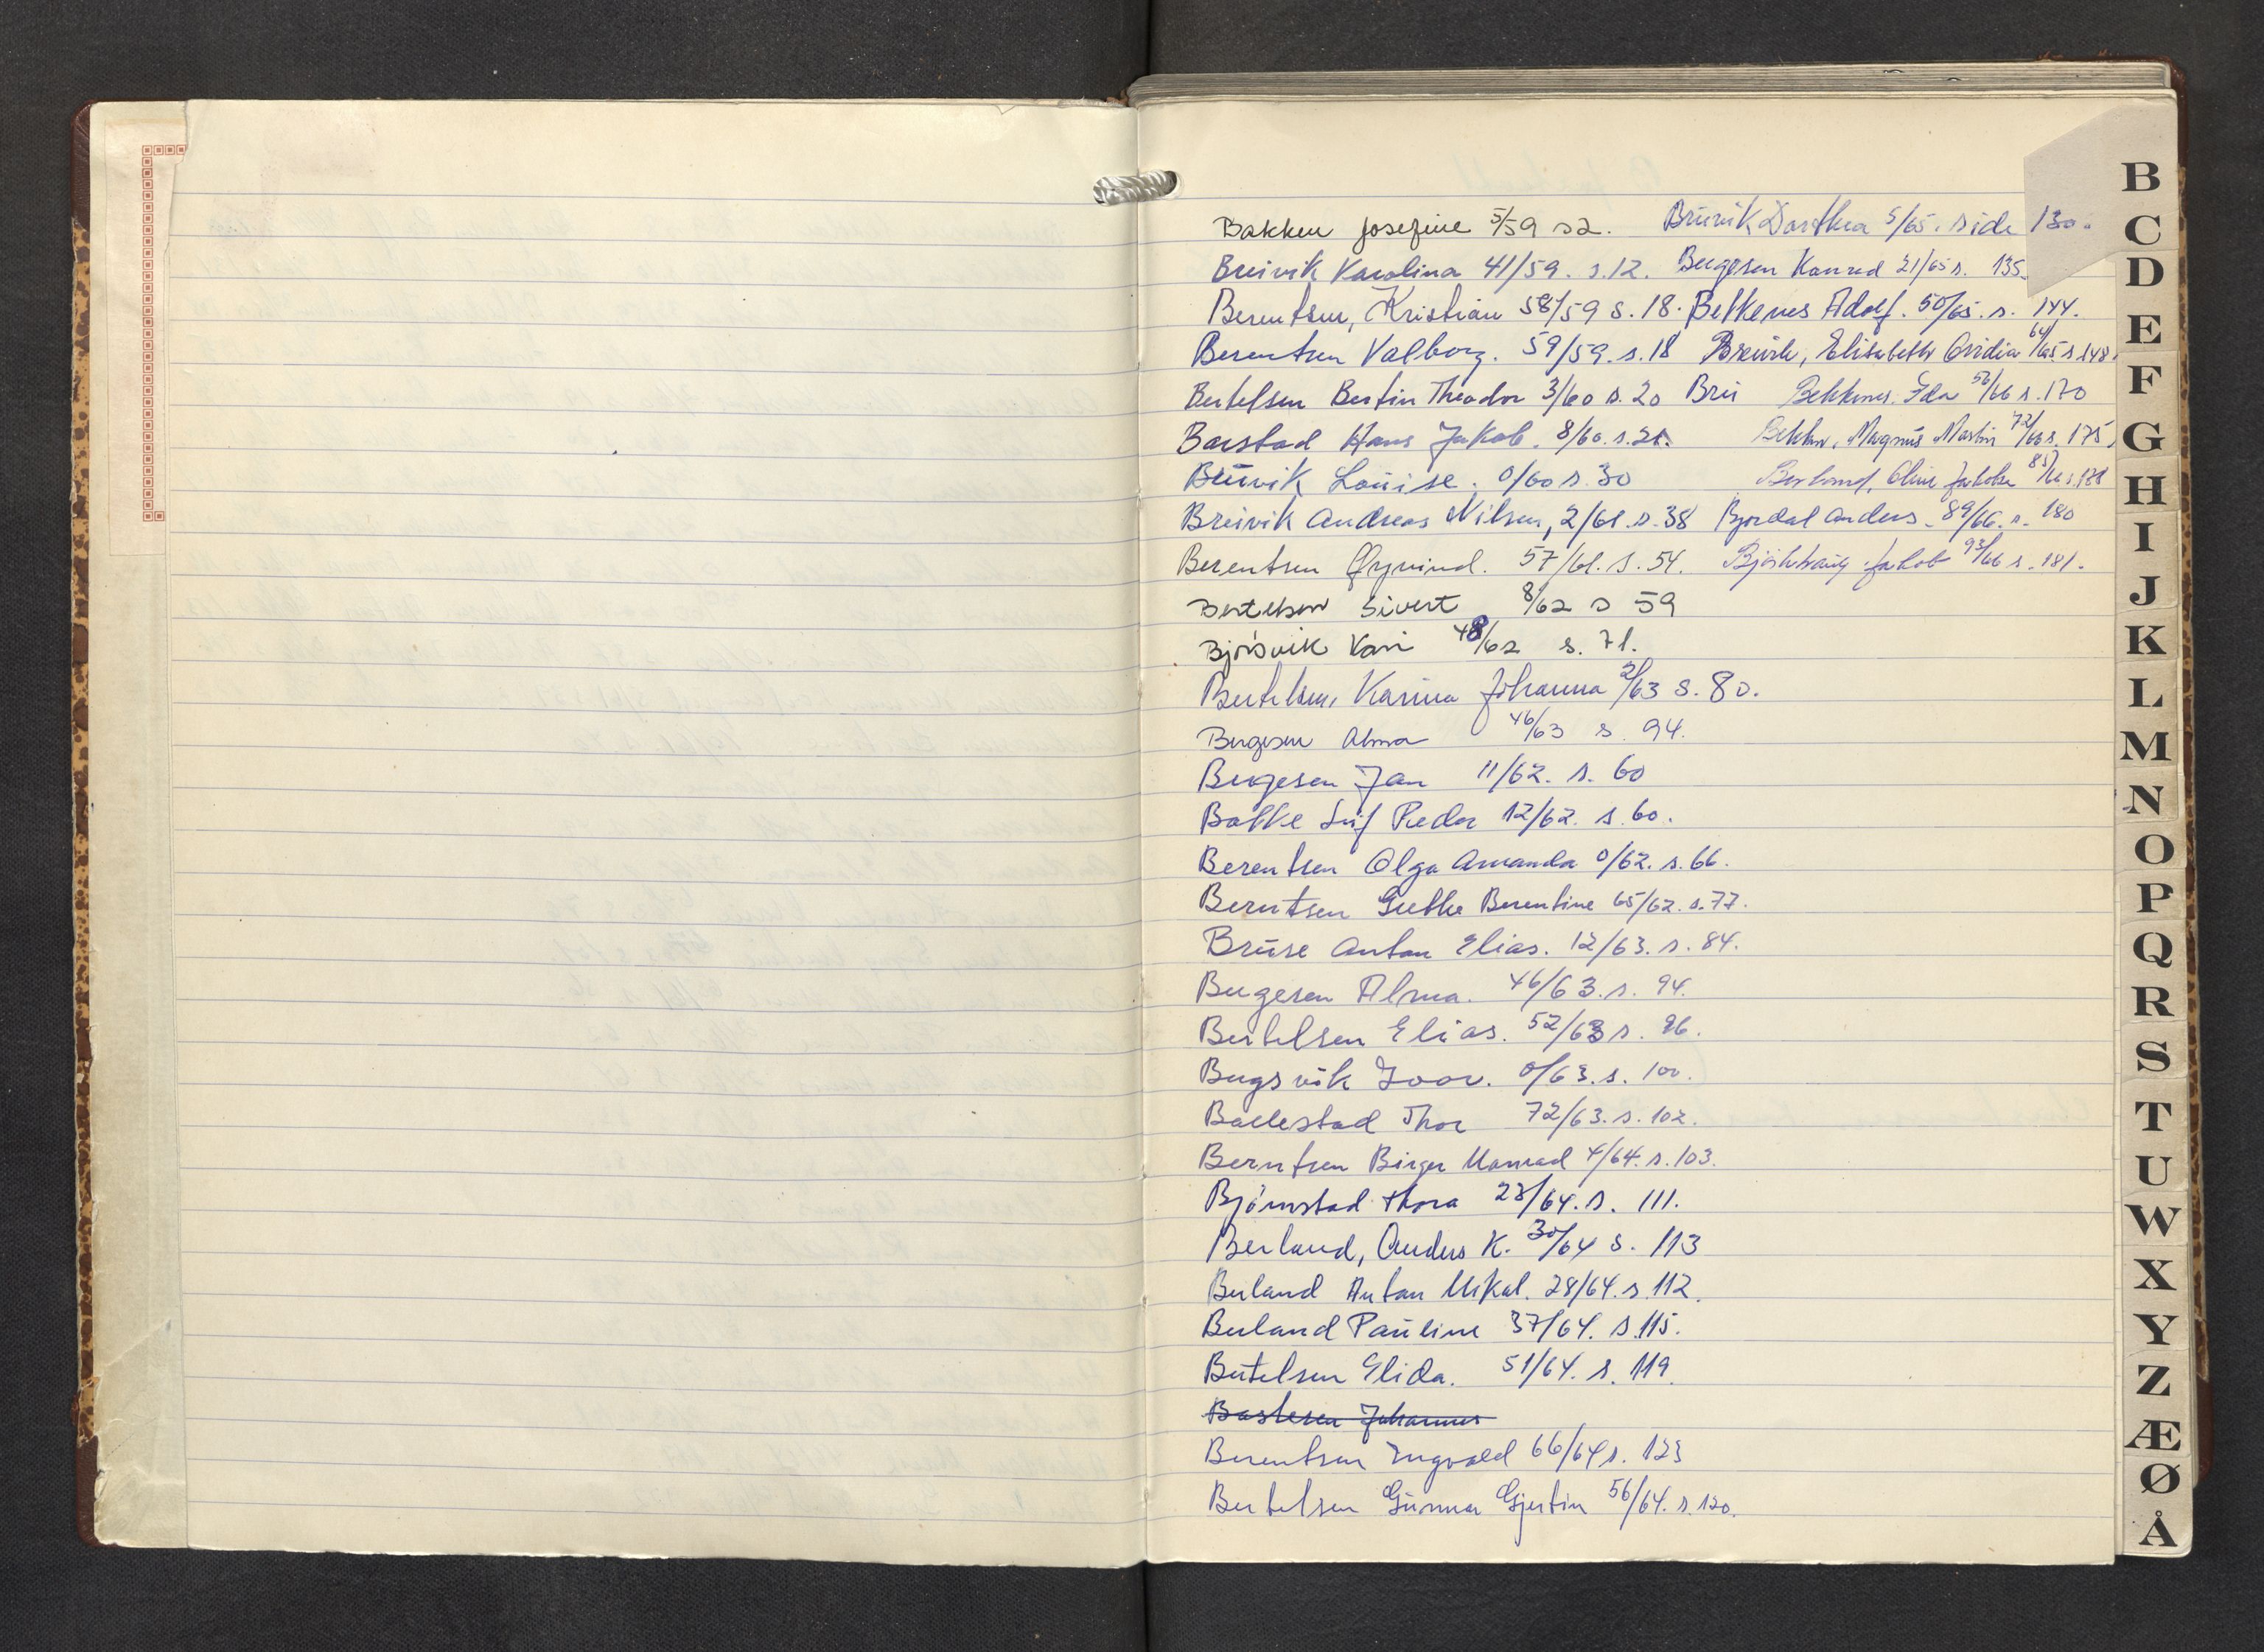 Bakken Josefine 5/59 s2. Breivik Dorthea 5/65. side 130.
Breivik Karolina 41/59. s.12. Bergesen Konrad 21/65 s. 135.
Berentsen, Kristian 58/59 s. 18. Bekkenes Adolf. 50/65. s. 144.
Berentsen Valborg. 59/59. s. 18 Breivik, Elisabeth Ovidia 64/65 s 148.
Bertelsen Bertin Theodor 3/60 s. 20 Brei Bekkenes. Ida 52/66 s. 170
Barstad Hans Jakob. 8/60. s. 21. Magnus Martin 72/66 s. 175.
Breivik Louise. 0/60 s. 30 Berland, Oline Jakobe
Breivik Andreas Nilsen, 2/61. s. 38 Bjordal Anders. 89/66. s. 180
Berentsen Øyvind. 57/61. s. 54. Jakob 93/66 s. 181.
Bertelsen Sivert 8/62 s 59
Bjørsvik Kari 48/62 s. 71.
Bertelsen, Karina Johanna 2/63 s. 80.
Bergesen Alma 46/63 s. 94.
Bergesen Jan 11/62. s. 60
Bakke Leif Peder 12/62. s. 60.
Berentsen Olga Amanda 0/62. s. 66.
Berntsen Berentine 65/62. s. 77.
Bruse Anton Elias. 12/63. s. 84.
Bergesen Alma. 46/63. s. 94.
Bertelsen Elias. 52/63 s. 96.
Bergsvik Ivar. 0/63. s. 100.
Ballestad Thor 72/63. s. 102.
Berntsen Birger Konrad 4/64. s. 103.
Bjørnstad Thora 23/64. s. 111.
Berland, Anders K. 30/64 s. 113
Berland Anton Mikal. 28/64. s. 112.
Berland Pauline 37/64. s. 115.
Bertelsen Elida. 51/64. s. 119.
Bastesen Johannes
Berentsen Ingvald 66/64 s. 123
Bertelsen Gunnar Gjertin 56/64. s. 120.
B
C
D
E
F
G
H
I
J
K
L
M
N
O
P
Q
R
S
T
U
W
X
Y
Z
Æ
Ø
Å